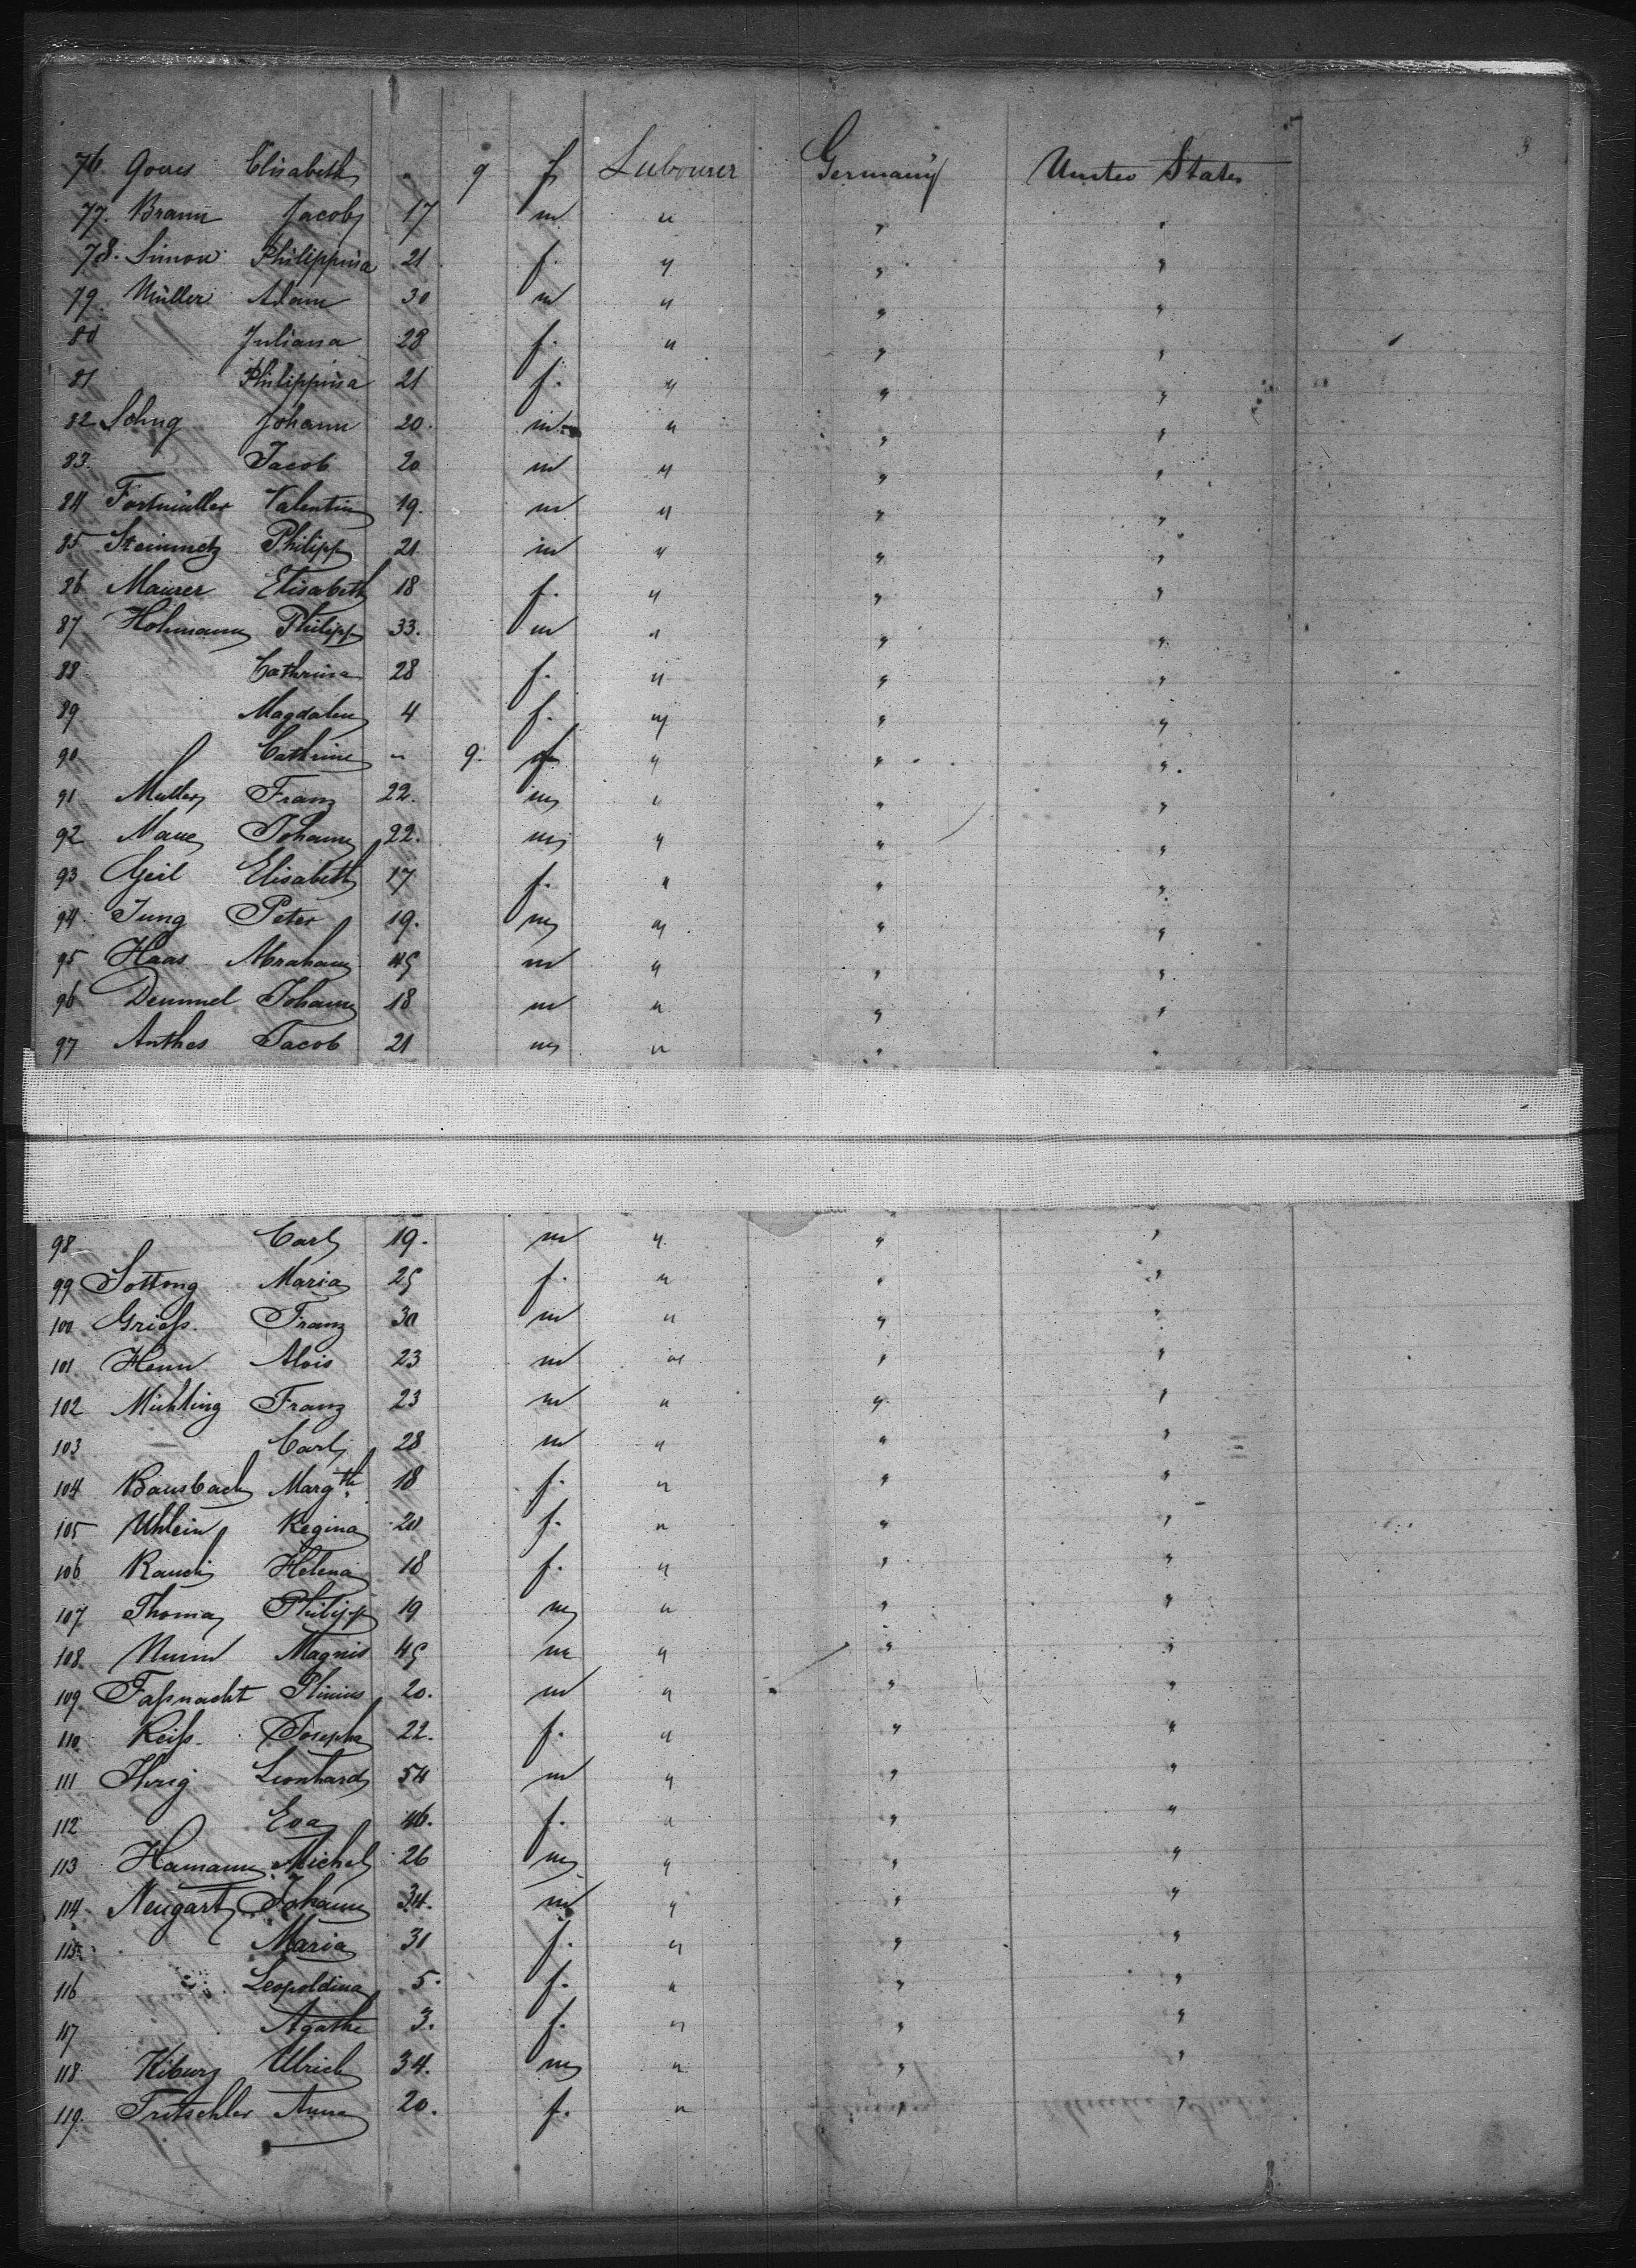 76. Goves Elisabeth " 9 f Labourer Germany United States
77. Braun Jacob 17 m " " "
78. Simon Philippina 21 f. " " "
79. Müller Adam 30 m " " "
80 Juliana 28 f. " " "
81 Philippina 21 f. " " "
82 Sohng Johann 20. m. " " "
83. Jacob 20 m " " "
84 Fortmüller Valentin 19. m " " "
85 Steinmetz Philipp 21. m " " "
86 Maurer Elisabeth 18 f. " " "
87 Hohmann Philipp 33. m " " "
88 Cathrina 28 f. " " "
89 Magdalen 4 f. " " "
90 Cathrine " 9. f " " "
91 Muller Franz 22. m " " "
92 Maue Johann 22. m " " "
93 Geil Elisabeth 17 f. " " "
94 Jung Peter 19. m " " "
95 Haas Abraham 45 m " " "
96 Demmel Johann 18 m " " "
97 Anthes Jacob 21 m " " "
98 Carl 19. m " " "
99 Sottong Maria 25 f. " " "
100 Grieß. Franz 30 m " " "
101 Henn Alois 23 m " " "
102 Michling Franz 23 m " " "
103 Carl 28 m " " "
104 Bausbach Margth. 18 f. " " "
105 Uhlein Regina 20 f. " " "
106 Rauch Helena 18 f. " " "
107. Thoma Philipp 19 m " " "
108. Nunn Magnus 45 m " " "
109. Faßnacht Plinius 20. m " " "
110. Reiß. Josepha 22. f. " " "
111 Ihrig Leonhard 54 m " " "
112 Eva 46. f. " " "
113 Hamann Michel 26 m " " "
114. Neugart Johann 34. m " " "
115. Maria 31 f. " " "
116 Leopoldina 5. f. " " "
117 Agathe 3. f. " " "
118. Kiburz Ulrich 34. m " " "
119. Fritschler Anna 20. f. " " "